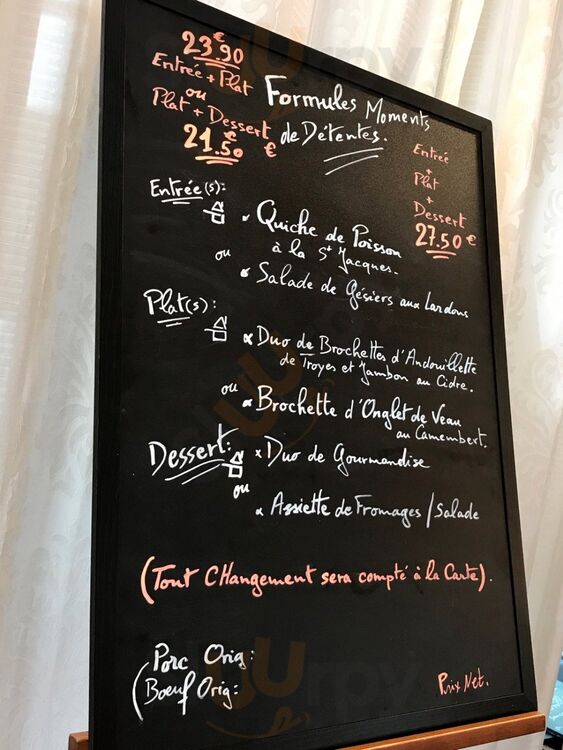 23€90
Entrée + Plat
ou
Plat + Dessert
21.50 €
Formules Moments
de Détentes.
Entrée
+
Plat
+
Dessert
27.50 €
Entrée(s):
Quiche de Poisson
à la St Jacques.
ou
Salade de Gésiers aux Lardons
Plat(s):
Duo de Brochettes d'Andouillette
de Troyes et Jambon au Cidre.
ou
Brochette d'Onglet de Veau
au Camembert.
Dessert:
Duo de Gourmandise
ou
Assiette de Fromages / Salade
(Tout CHangement sera compté à la Carte).
Porc Orig:
(Bœuf Orig:
Prix Net.